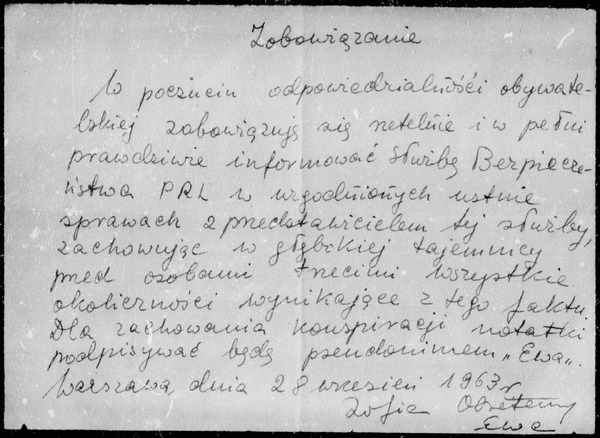 Zobowiązanie
W poczuciu odpowiedzialności obywate-
lskiej zobowiązuję się rzetelnie i w pełni
prawdziwie informować Służbę Bezpiecze-
ństwa PRL w uzgodnionych ustnie
sprawach z przedstawicielem tej służby,
zachowując w głębokiej tajemnicy
przed osobami trzecimi wszystkie
okoliczności wynikające z tego faktu.
Dla zachowania konspiracji notatki
podpisywać będę pseudonimem „Ewa".
Warszawa, dnia 28 wrzesień 1963 r
Zofia
Ewa